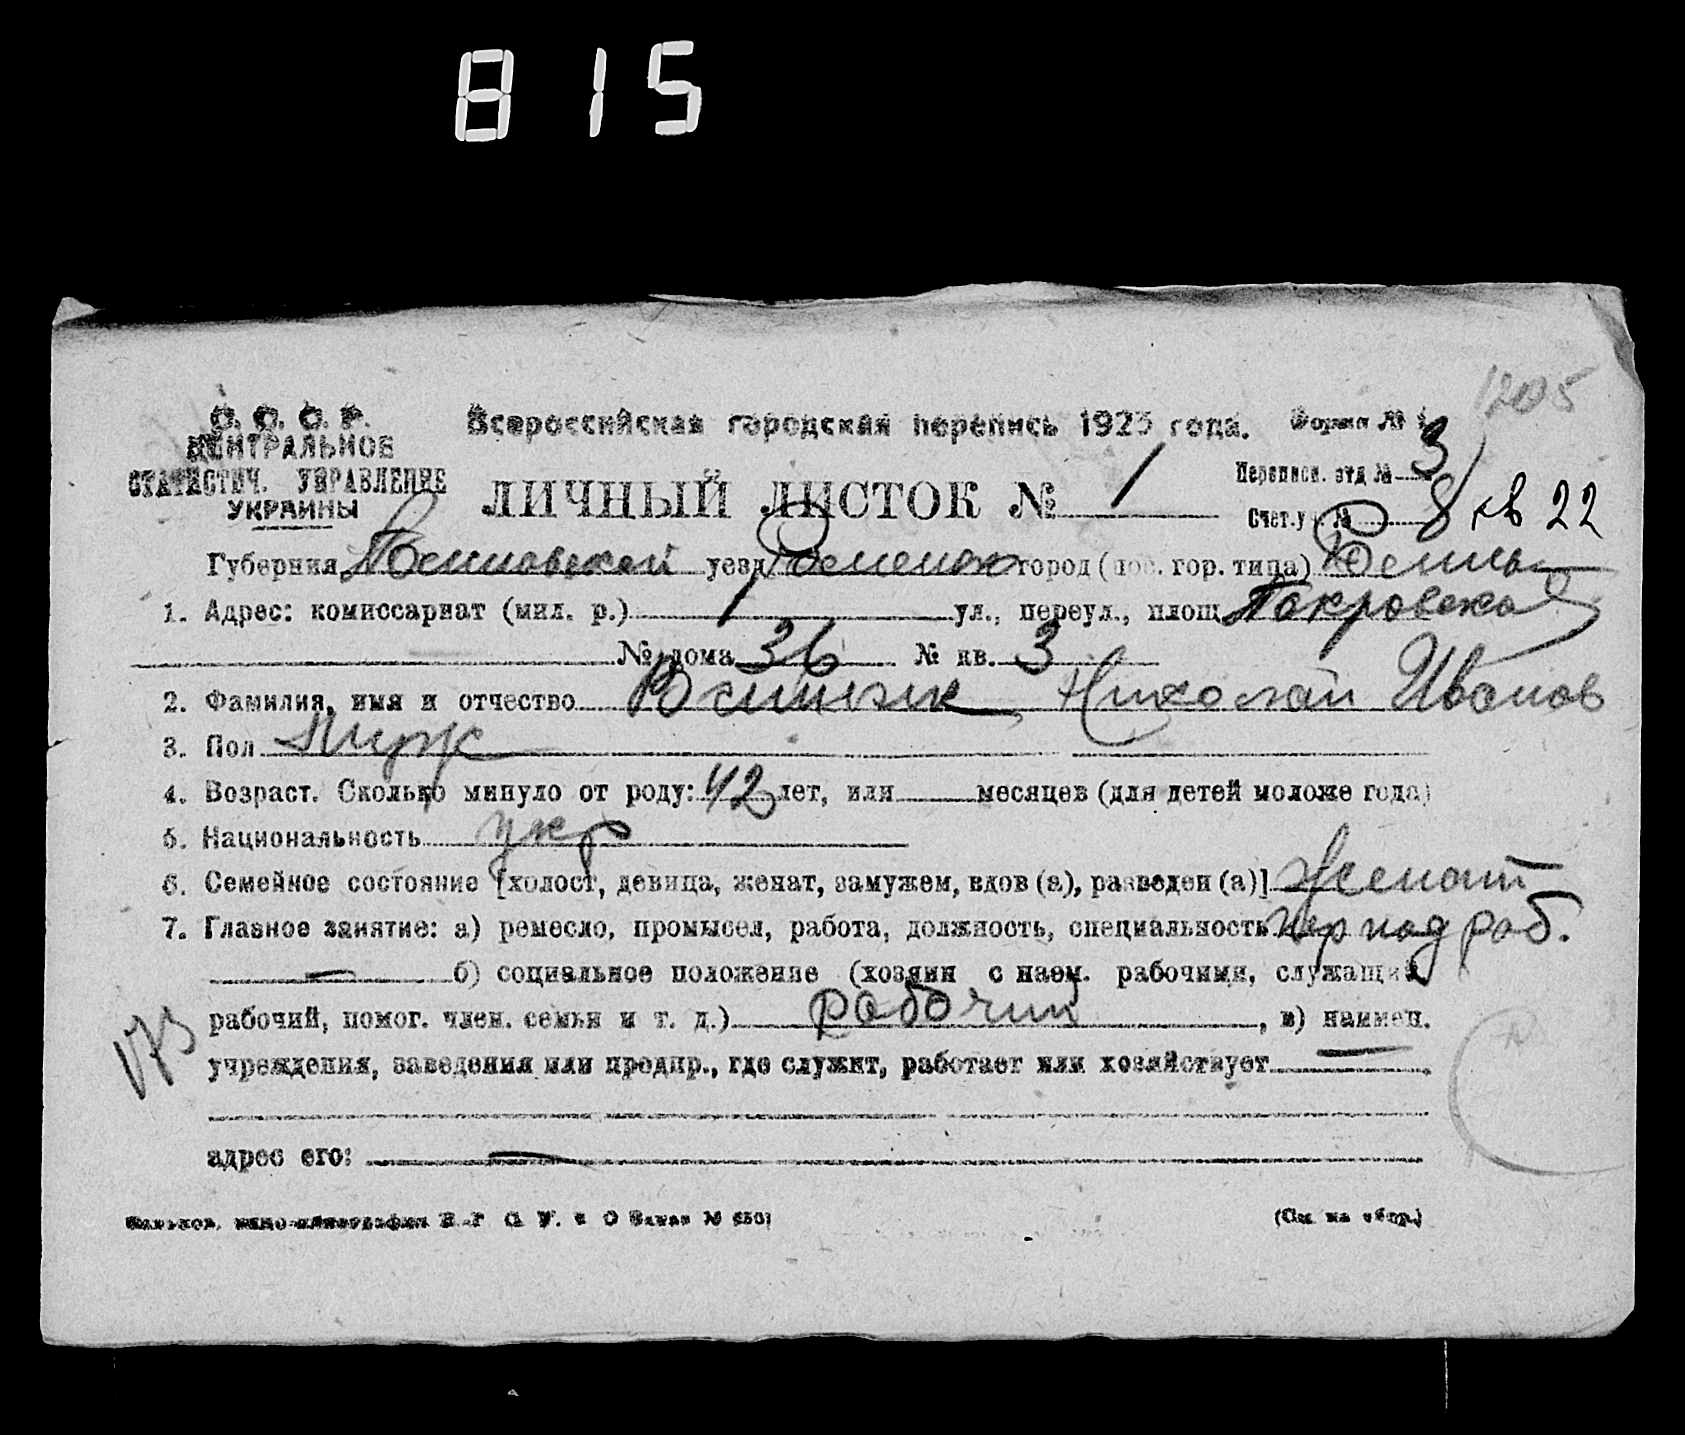 815
1205
С. С. С. Р.
ЦЕНТРАЛЬНОЕ
СТАТИСТИЧ. УПРАВЛЕНИЕ
УКРАИНЫ
Всероссийская городская перепись 1923 года.
Форма №
Переписн. отд № 3
ЛИЧНЫЙ ЛИСТОК № 1
Счет. у № 8 кв 22
Губерния уезд город (пос. гор. типа)
1. Адрес: комиссариат (мил. р.) 1 ул., переул., площ Покровская
№ дома 36 № кв. 3
2. Фамилия, имя и отчество Николай Иванов
3. Пол Муж
4. Возраст. Сколько минуло от роду: 42 лет, или месяцев (для детей моложе года)
5. Национальность укр
6. Семейное состояние [холост, девица, женат, замужем, вдов (а), разведен (а)] Женат
7. Главное занятие: а) ремесло, промысел, работа, должность, специальность раб.
— б) социальное положение (хозяин с наем. рабочими, служащий,
рабочий, помог. член. семьи и т. д.) рабочий, в) наимен.
учреждения, заведения или предпр., где служит, работает или хозяйствует —
адрес его: —
173
(См. на обор.)